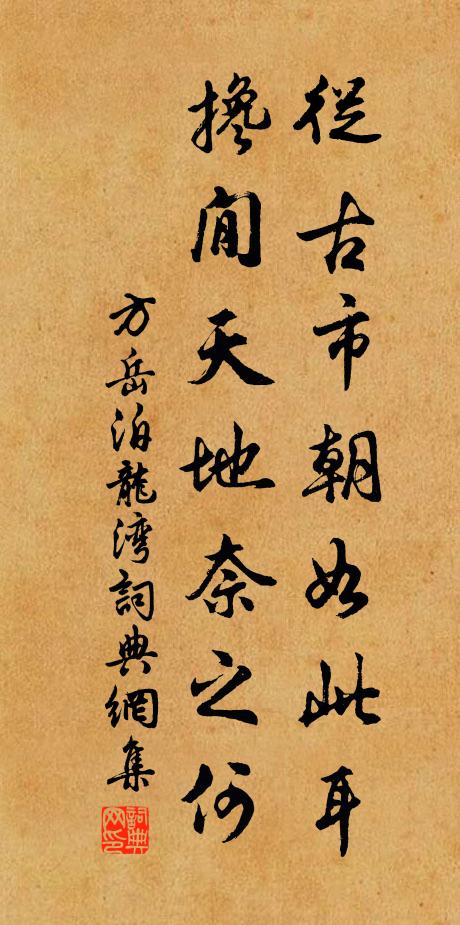 從古市朝如此耳
攙閒天地奈之何
方岳泊龍湾詞典網集
詞典网印